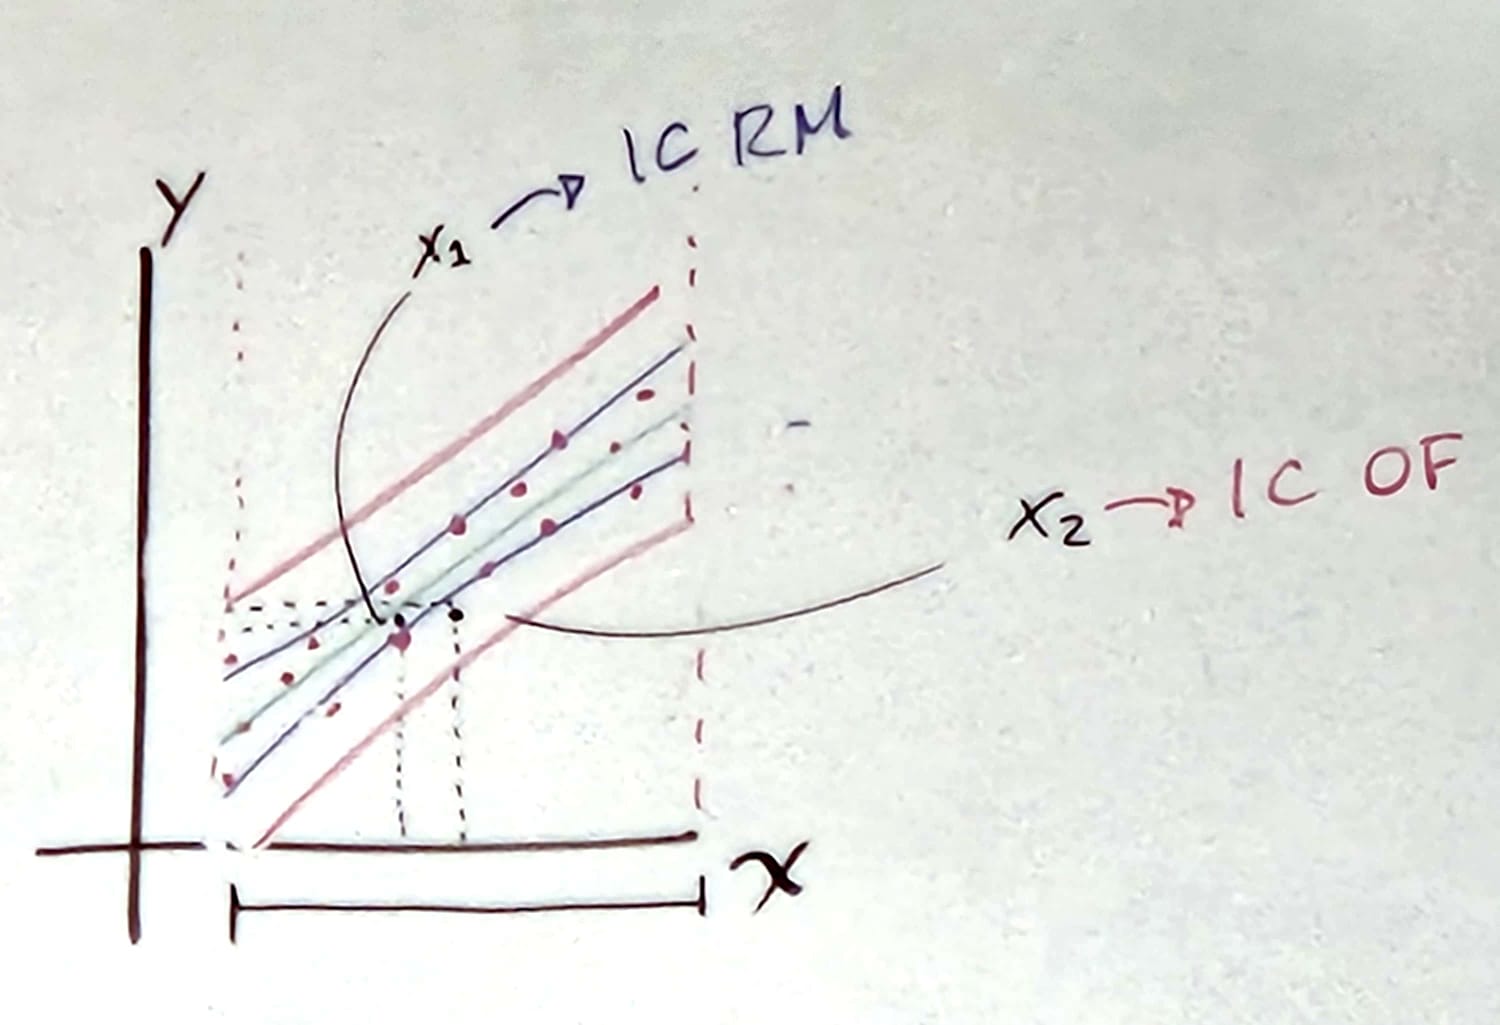 Y
x₁ → IC RM
x₂ → IC OF
x